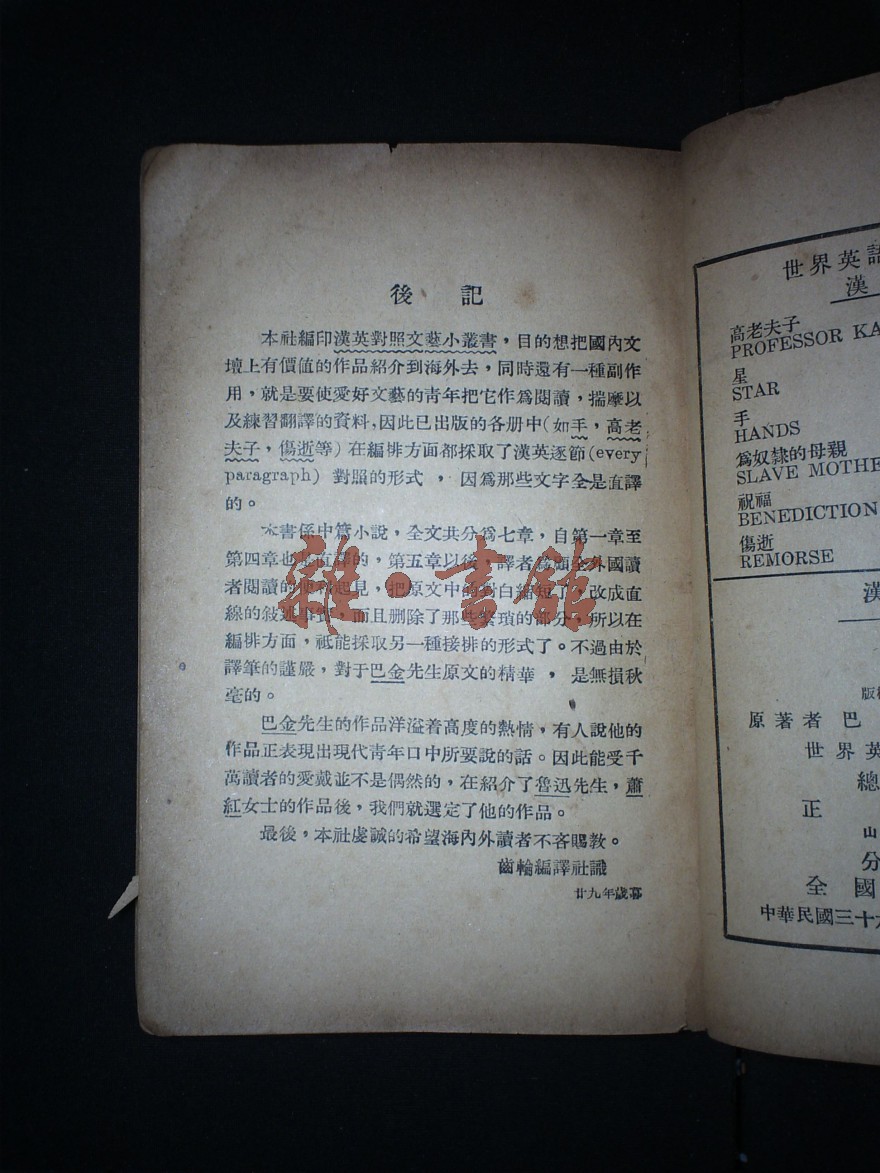 後 記
本社編印漢英對照文藝小叢書，目的想把國內文
壇上有價值的作品紹介到海外去，同時還有一種副作
用，就是要使愛好文藝的青年把它作爲閱讀，揣摩以
及練習翻譯的資料，因此已出版的各册中（如手，高老
夫子，傷逝等）在編排方面都採取了漢英逐節(every
paragraph) 對照的形式，因爲那些文字全是直譯
的。
本書係中篇小說，全文共分爲七章，自第一章至
第四章也是直譯的，第五章以後，譯者爲顧全外國讀
者閱讀的便利起見，把原文中的對白縮短了，改成直
線的敍述事實，而且删除了那些繁瑣的部分，所以在
編排方面，祇能採取另一種接排的形式了。不過由於
譯筆的謹嚴，對于巴金先生原文的精華，是無損秋
毫的。
巴金先生的作品洋溢着高度的熱情，有人說他的
作品正表現出現代靑年口中所要說的話。因此能受千
萬讀者的愛戴並不是偶然的，在紹介了魯迅先生，蕭
紅女士的作品後，我們就選定了他的作品。
最後，本社虔誠的希望海內外讀者不吝賜教。
齒輪編譯社識
廿九年歲暮
雜·書館
世界英語
漢
高老夫子
PROFESSOR KA
星
STAR
手
HANDS
爲奴隸的母親
SLAVE MOTHE
祝福
BENEDICTION
傷逝
REMORSE
漢
版
原著者 巴
世界英
總
正
山
分
全國
中華民國三十